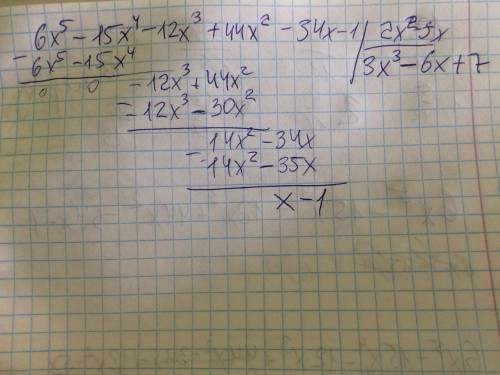 6x⁵ - 15x⁴ - 12x³ + 44x² - 34x - 1 | 2x² - 5x
- 6x⁵ - 15x⁴ 3x³ - 6x + 7
0 0 - 12x³ + 44x²
- - 12x³ - 30x²
14x² - 34x
- 14x² - 35x
x - 1